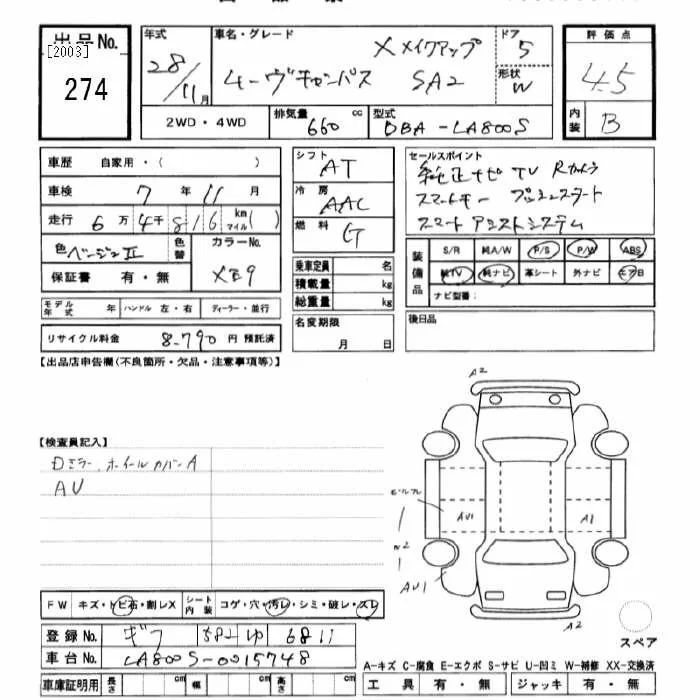 出品No.
[2003]
274
年式
28/11月
車名・グレード
X メイクアップ
ムーヴキャンバス SA2
ドア
5
形状
W
評価点
4.5
内装
B
2WD・4WD
排気量 660 cc
型式 DBA-LA800S
車歴 自家用・( )
車検 7年 11月
走行 6万4千816 km マイル( )
色 ベージュII
色替
カラーNo.
XE9
保証書 有・無
モデル年式 年 ハンドル 左・右 ディーラー・並行
リサイクル料金 8.790 円 預託済
シフト AT
冷房 AAC
燃料 G
乗車定員 名
積載量 kg
総重量 kg
名変期限
月 日
セールスポイント
純正ナビ TV Rカメラ
スマートキー プッシュスタート
スマートアシストシステム
装備品
S/R 純A/W P/S P/W ABS
純TV 純ナビ 革シート 外ナビ エアB
ナビ型番:
後日品
【出品店申告欄(不良箇所・欠品・注意事項等)】
【検査員記入】
Dミラー、ホイールカバーA
AU
A2
AU1
A1
AU1
A2
FW キズ・トビ石・割レX シート内装 コゲ・穴・汚レ・シミ・破レ・スレ
登録No. ギフ 582 ゆ 6811
車台No. LA800S-0015748
車庫証明用 長さ cm 幅 cm 高さ cm
スペア
A-キズ C-腐食 E-エクボ S-サビ U-凹ミ W-補修 XX-交換済
工具 有・無 ジャッキ 有・無